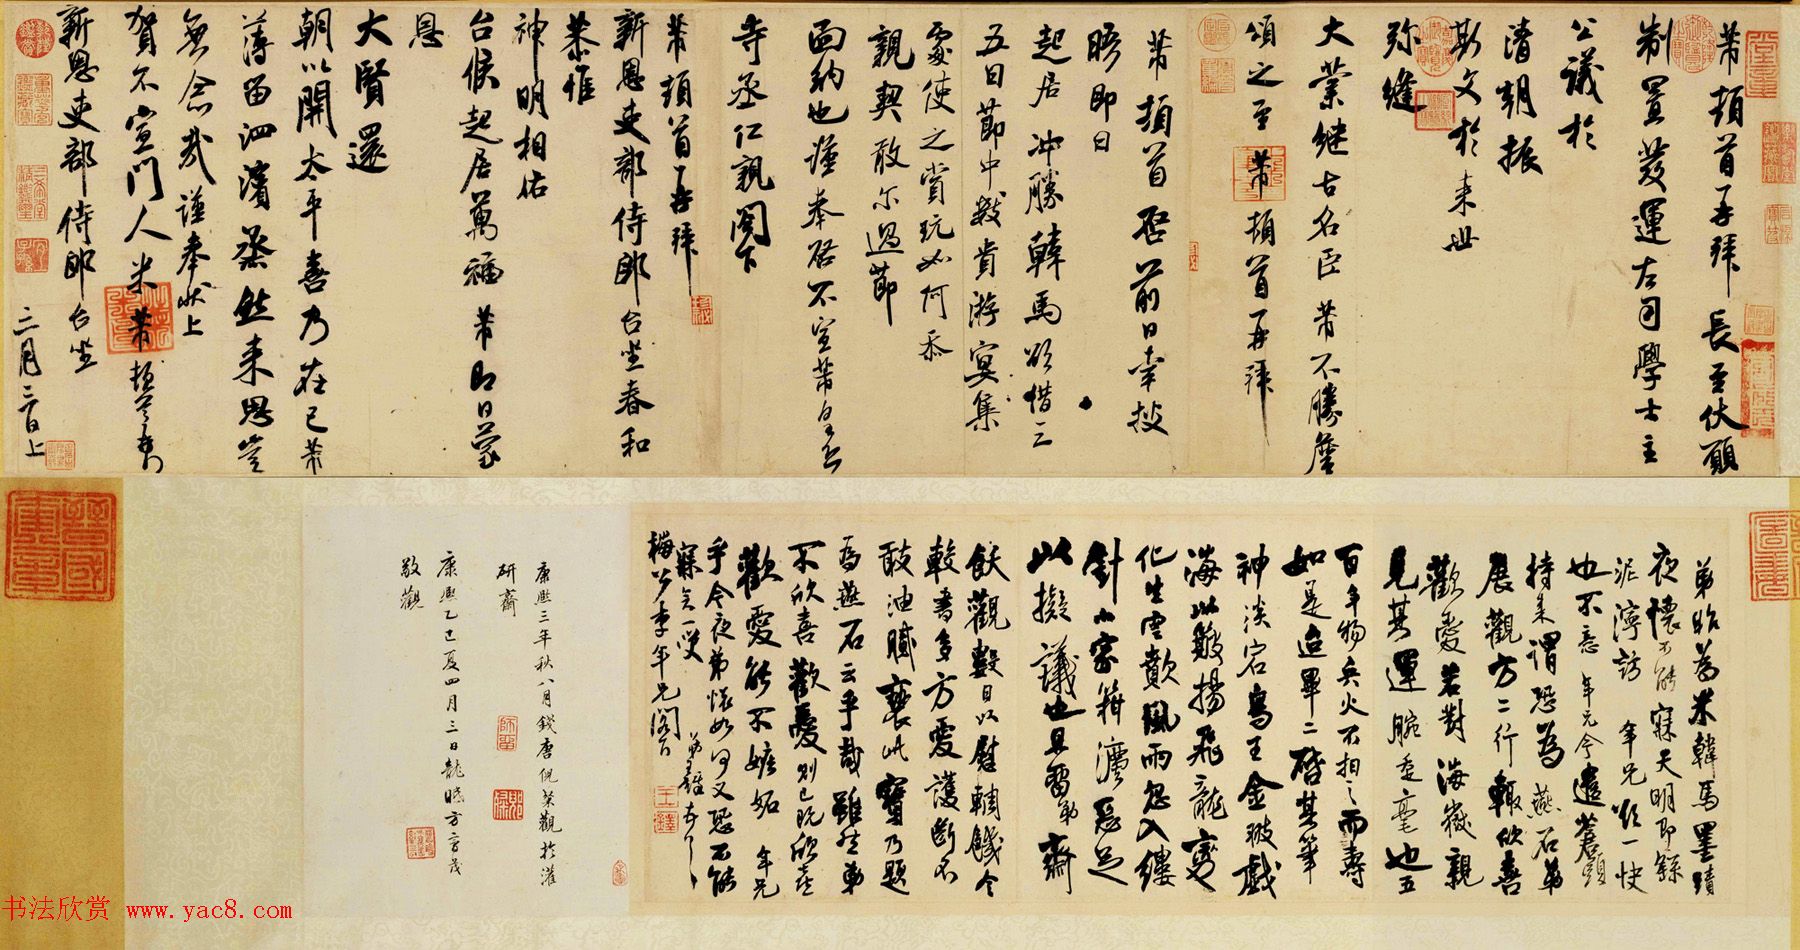 芾頓首再拜 長至伏願
制置發運左司學士主
公議於
清朝振
斯文於來世
弥縫
大業继古名臣 芾不勝詹
頌之至 芾頓首再拜
芾頓首啓 前日幸披
晤即日
起居冲勝韓馬欲借三
五日節中數貴游宴集
處使之賞玩如何 忝
親契敢尔過節
面納也謹奉啓不宣芾
寺丞仁親閣下
芾頓首再拜
新恩吏部侍郎台坐春和
恭惟
神明相佑
台候起居萬福 芾即日蒙
恩
大賢還
朝以開太平喜乃在己芾
薄留泗濱蒸然來思豈
無念哉謹奉状上
賀不宣門人米芾
新恩吏部侍郎 台坐
二月二日上
弟昨為米韓馬墨蹟
夜懷不能寐天明即
泥濘訪 年兄 一快
也不意 年兄今遣蒼頭
持來謂恐為燕石弟
展觀方二行輒欣喜
歡愛若對海嶽親
見其運腕走毫也五
百年物兵火不相之而壽
如是 畢二啓其筆
神淡宕鳥王金翅戲
海以皷揚飛龍變
化生雲歕風雨忽入
針 家 濆惡足
以擬議也且留弟齋
飫觀數日以慰輖饑今
較書多方愛護斷不
敢油膩褻此寶乃題
為燕石云乎哉雖然弟
不欣喜歡憂則已既欣喜
歡愛能不嫉妬 年兄
乎今夜弟懷如何又恐不能
寐矣一笑
梅公李年兄閣下 弟鐸
康熙三年秋八月錢唐倪粲觀於灌
研齋
康熙乙巳夏四月三日龍眠方亨咸
敬觀
书法欣赏 www.yac8.com